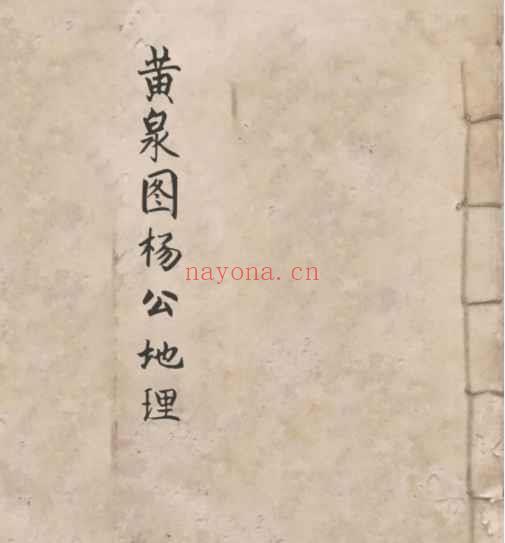 黄泉图杨公地理
nayona.cn